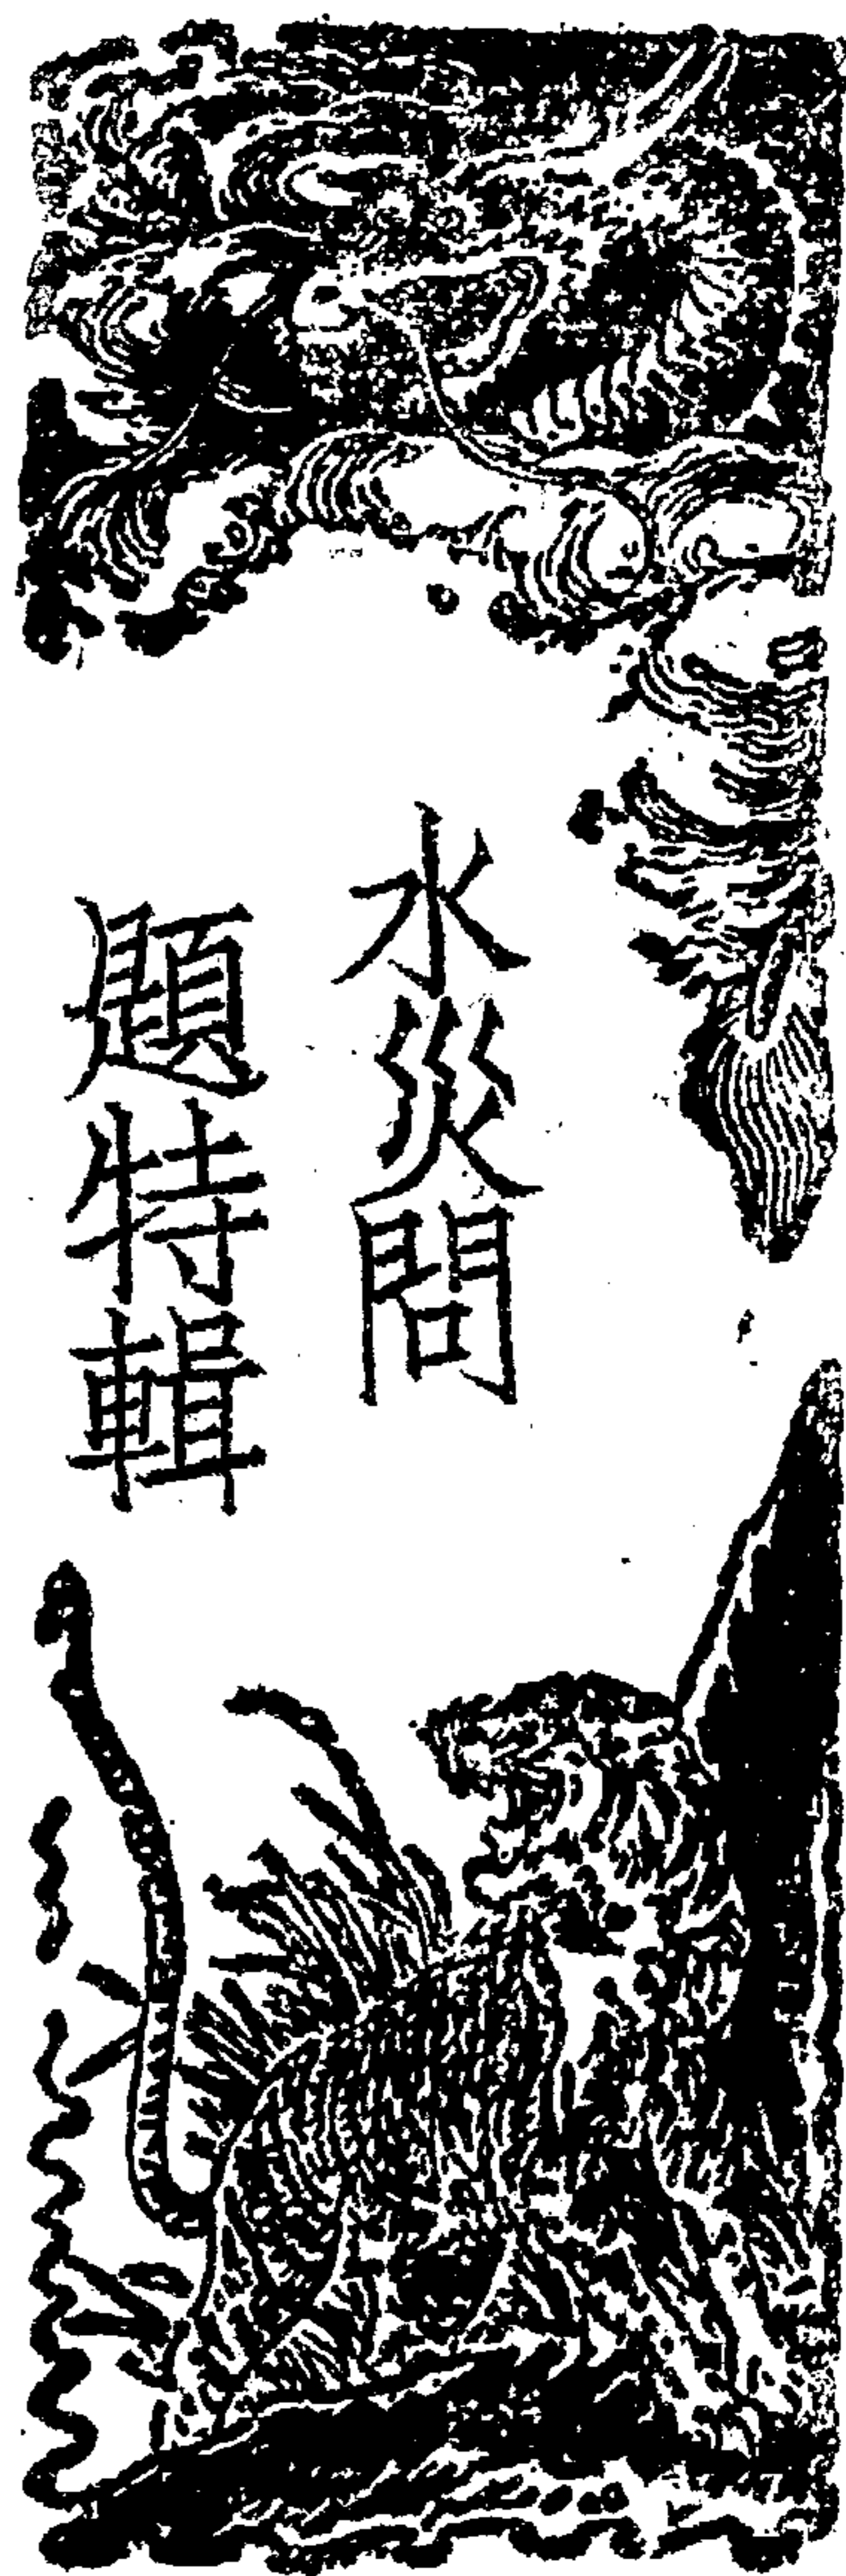 水災問
題特輯